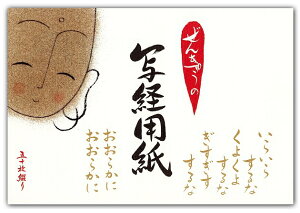 ぜんきゅうの
写経用紙
いらいら
するな
くよくよ
するな
ぎすぎす
するな
おおらかに
おおらかに